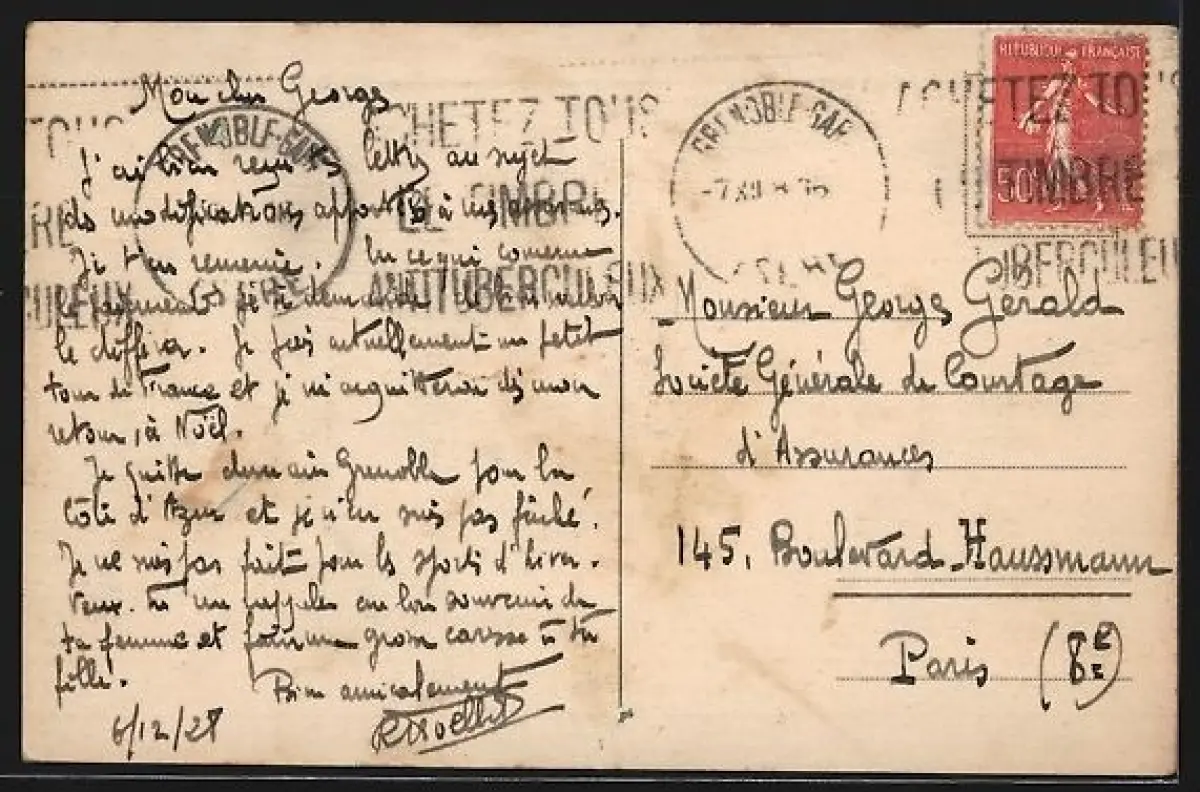 Mon cher Georges
J'ai bien reçu ta lettre au sujet
des modifications apportées à mes
Je t'en remercie. En ce qui concerne
le je te demande de bien vouloir
le différer. Je fais actuellement un petit
tour de France et je m'acquitterai dès mon
retour, à Noël.
Je quitte demain Grenoble pour la
Côte d'Azur et je n'en suis pas fâché.
Je ne suis pas fait pour les sports d'hiver.
Veux-tu me rappeler au bon souvenir de
ta femme et faire une grosse caresse à ta
fille.
Bien amicalement
6/12/28
GRENOBLE-GARE
ACHETEZ TOUS
LE TIMBRE
ANTITUBERCULEUX
GRENOBLE-GARE
-7 XII
ISERE
REPUBLIQUE FRANÇAISE
50
ACHETEZ TOUS
TIMBRE
TUBERCULEUX
Monsieur Georges Gérald
Société Générale de Courtage
d'Assurances
145, Boulevard Haussmann
Paris (8E)